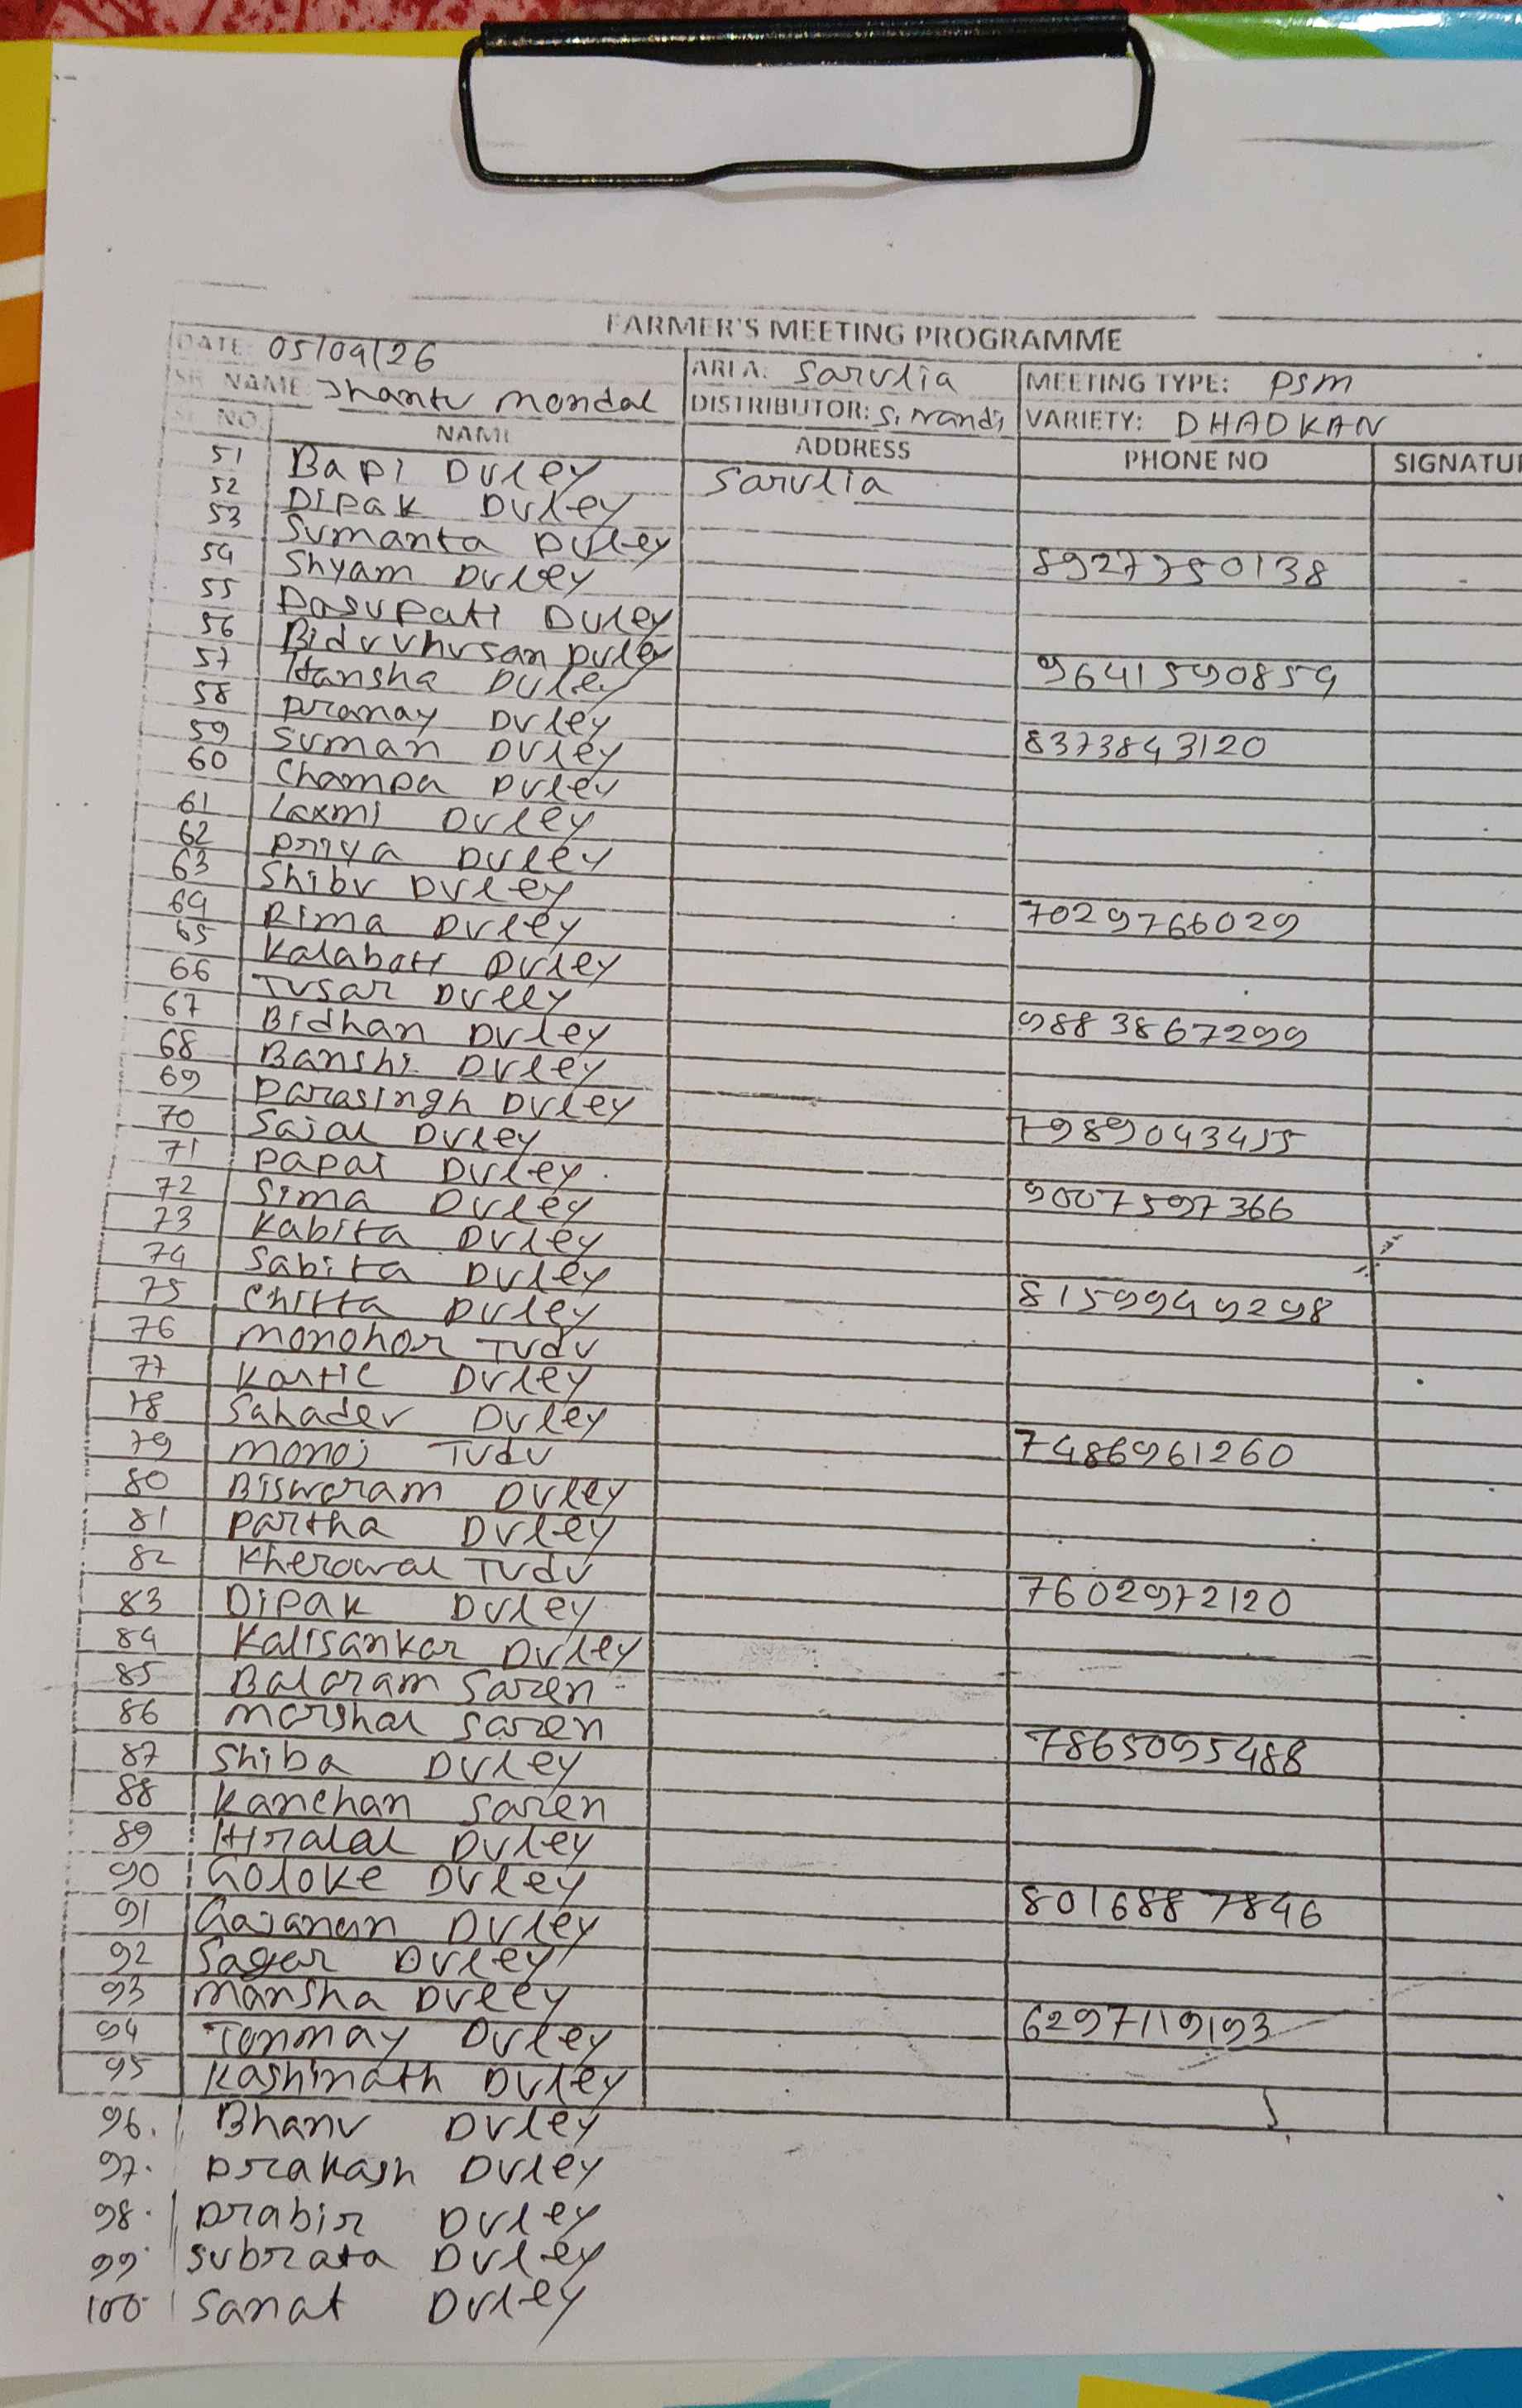 FARMER'S MEETING PROGRAMME
DATE: 05/04/26 AREA: Sarulia MEETING TYPE: PSM
SR. NAME: Jhantu Mondal DISTRIBUTOR: S. Nandi VARIETY: DHADKAN
SL NO. NAME ADDRESS PHONE NO SIGNATU
51 Bapi Duley Sarulia
52 Dipak Duley
53 Sumanta Duley 8927750138
54 Shyam Duley
55 Pasupati Duley
56 Biduvhusan Duley 9641590854
57 Hansha Duley
58 Pranay Duley 8373843120
59 Suman Duley
60 Champa Duley
61 Laxmi Duley
62 Priya Duley
63 Shibu Duley 7029766029
64 Rima Duley
65 Kalabati Duley
66 Tusar Duley 9883867299
67 Bidhan Duley
68 Banshi Duley
69 Parasingh Duley 7989043455
70 Sajal Duley
71 Papai Duley 9007597366
72 Sima Duley
73 Kabita Duley
74 Sabita Duley 8159949298
75 Chitta Duley
76 Monohor Tudu
77 Kartic Duley
78 Sahadev Duley 7486961260
79 Monoj Tudu
80 Biswaram Duley
81 Partha Duley
82 Kherowal Tudu 7602972120
83 Dipak Duley
84 Kalisankar Duley
85 Balaram Saren
86 Marshal Saren 7865095488
87 Shiba Duley
88 Kanchan Saren
89 Hiralal Duley
90 Goloke Duley 8016887846
91 Gajanan Duley
92 Sagar Duley
93 Mansha Duley 6297119193
94 Tonmay Duley
95 Kashinath Duley
96. Bhanu Duley
97. Prakash Duley
98. Prabir Duley
99. Subrata Duley
100. Sanat Duley